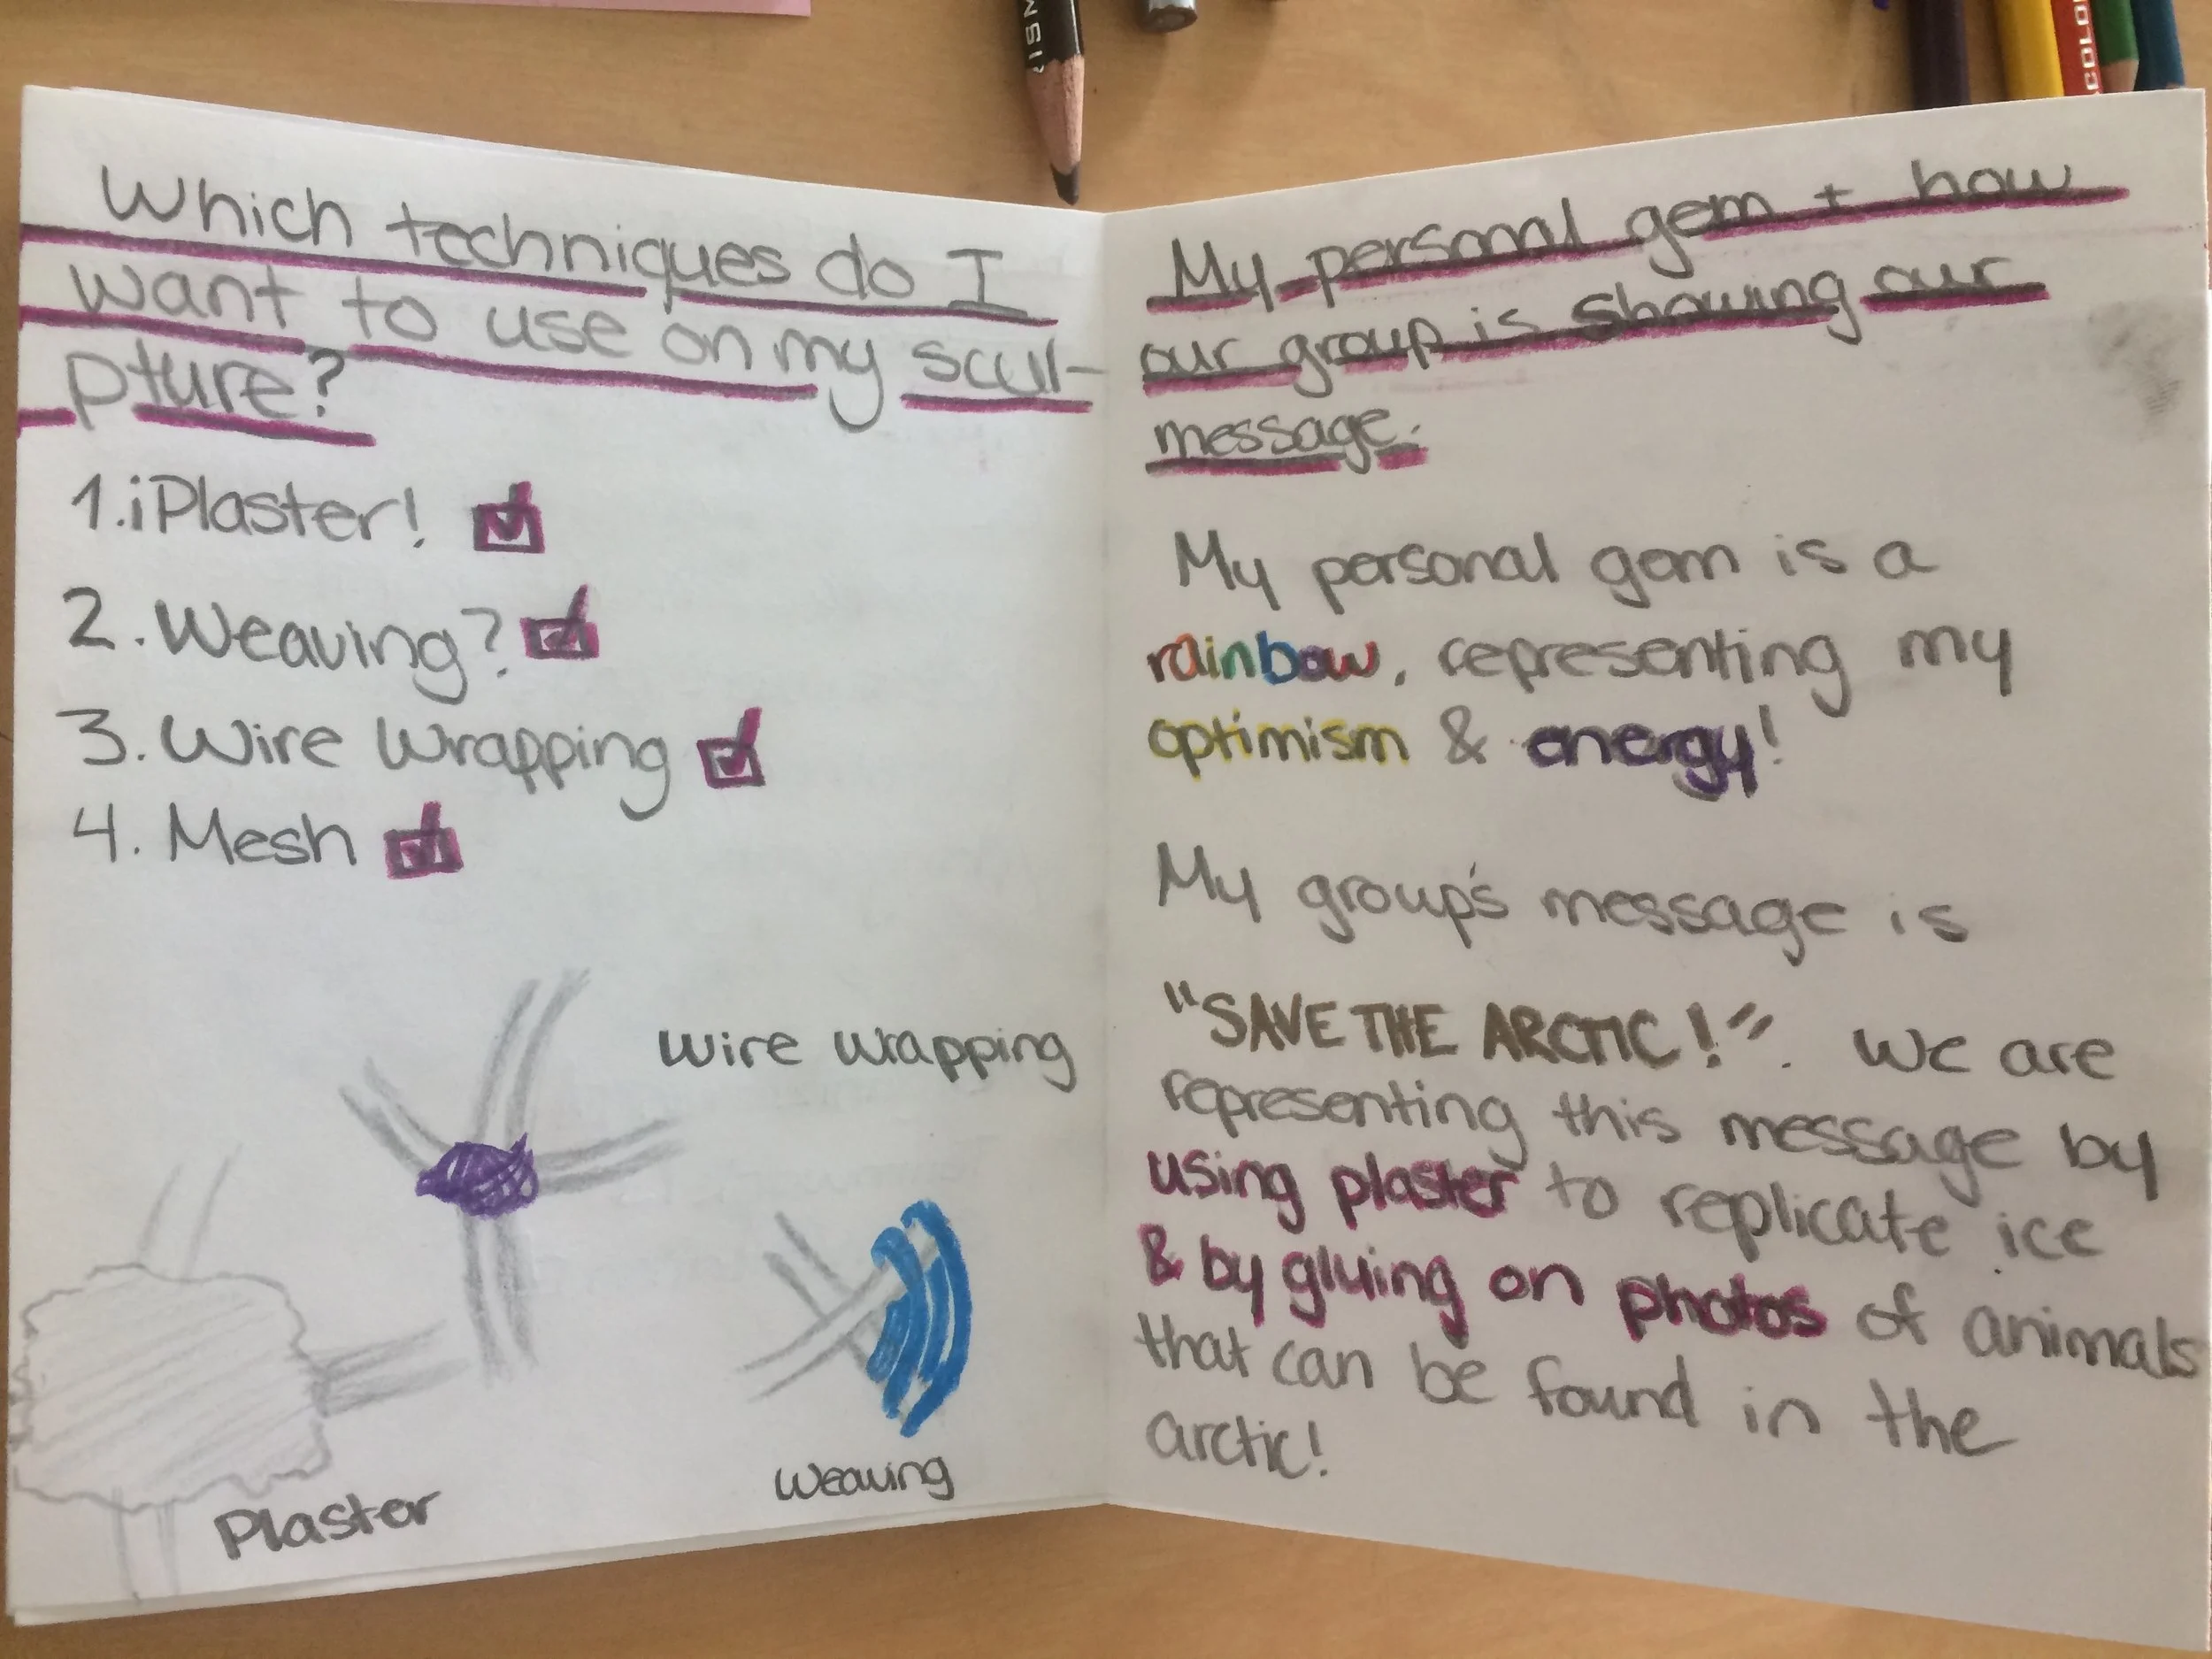 Which techniques do I
want to use on my scul-
pture?
1. ¡Plaster!
2. Weaving?
3. Wire Wrapping
4. Mesh
Wire Wrapping
Weaving
Plaster
My personal gem + how
our group is showing our
message.
My personal gem is a
rainbow, representing my
optimism & energy!
My group's message is
"SAVE THE ARCTIC!". We are
representing this message by
using plaster to replicate ice
& by gluing on photos of animals
that can be found in the
arctic!